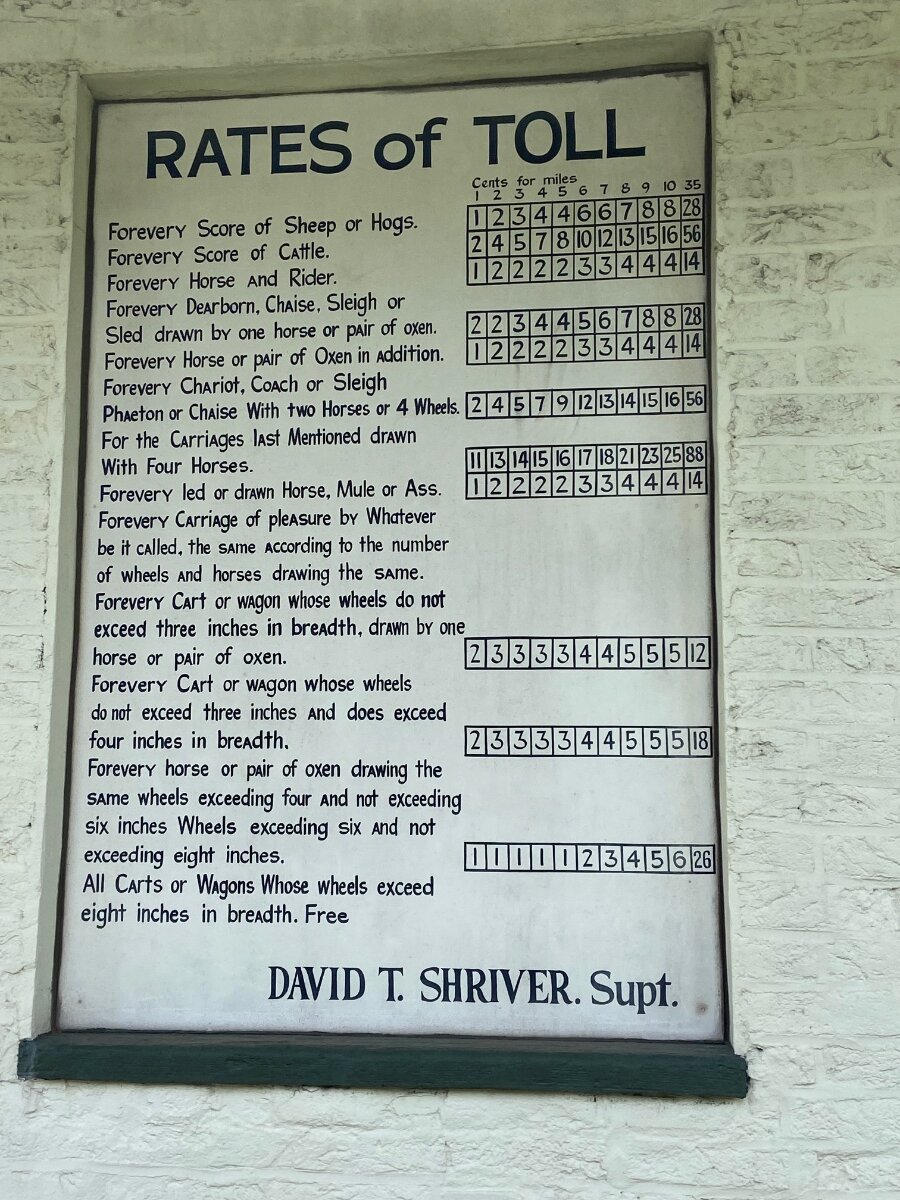 RATES of TOLL
Cents for miles
1 2 3 4 5 6 7 8 9 10 35
Forevery Score of Sheep or Hogs. 1 2 3 4 4 6 6 7 8 8 28
Forevery Score of Cattle. 2 4 5 7 8 10 12 13 15 16 56
Forevery Horse and Rider. 1 2 2 2 2 3 3 4 4 4 14
Forevery Dearborn, Chaise, Sleigh or
Sled drawn by one horse or pair of oxen. 2 2 3 4 4 5 6 7 8 8 28
Forevery Horse or pair of Oxen in addition. 1 2 2 2 2 3 3 4 4 4 14
Forevery Chariot, Coach or Sleigh
Phaeton or Chaise With two Horses or 4 Wheels. 2 4 5 7 9 12 13 14 15 16 56
For the Carriages last Mentioned drawn
With Four Horses. 11 13 14 15 16 17 18 21 23 25 88
Forevery led or drawn Horse, Mule or Ass. 1 2 2 2 2 3 3 4 4 4 14
Forevery Carriage of pleasure by Whatever
be it called, the same according to the number
of wheels and horses drawing the same.
Forevery Cart or wagon whose wheels do not
exceed three inches in breadth, drawn by one
horse or pair of oxen. 2 3 3 3 3 4 4 5 5 5 12
Forevery Cart or wagon whose wheels
do not exceed three inches and does exceed
four inches in breadth. 2 3 3 3 3 4 4 5 5 5 18
Forevery horse or pair of oxen drawing the
same wheels exceeding four and not exceeding
six inches Wheels exceeding six and not
exceeding eight inches. 1 1 1 1 1 2 3 4 5 6 26
All Carts or Wagons Whose wheels exceed
eight inches in breadth. Free
DAVID T. SHRIVER. Supt.